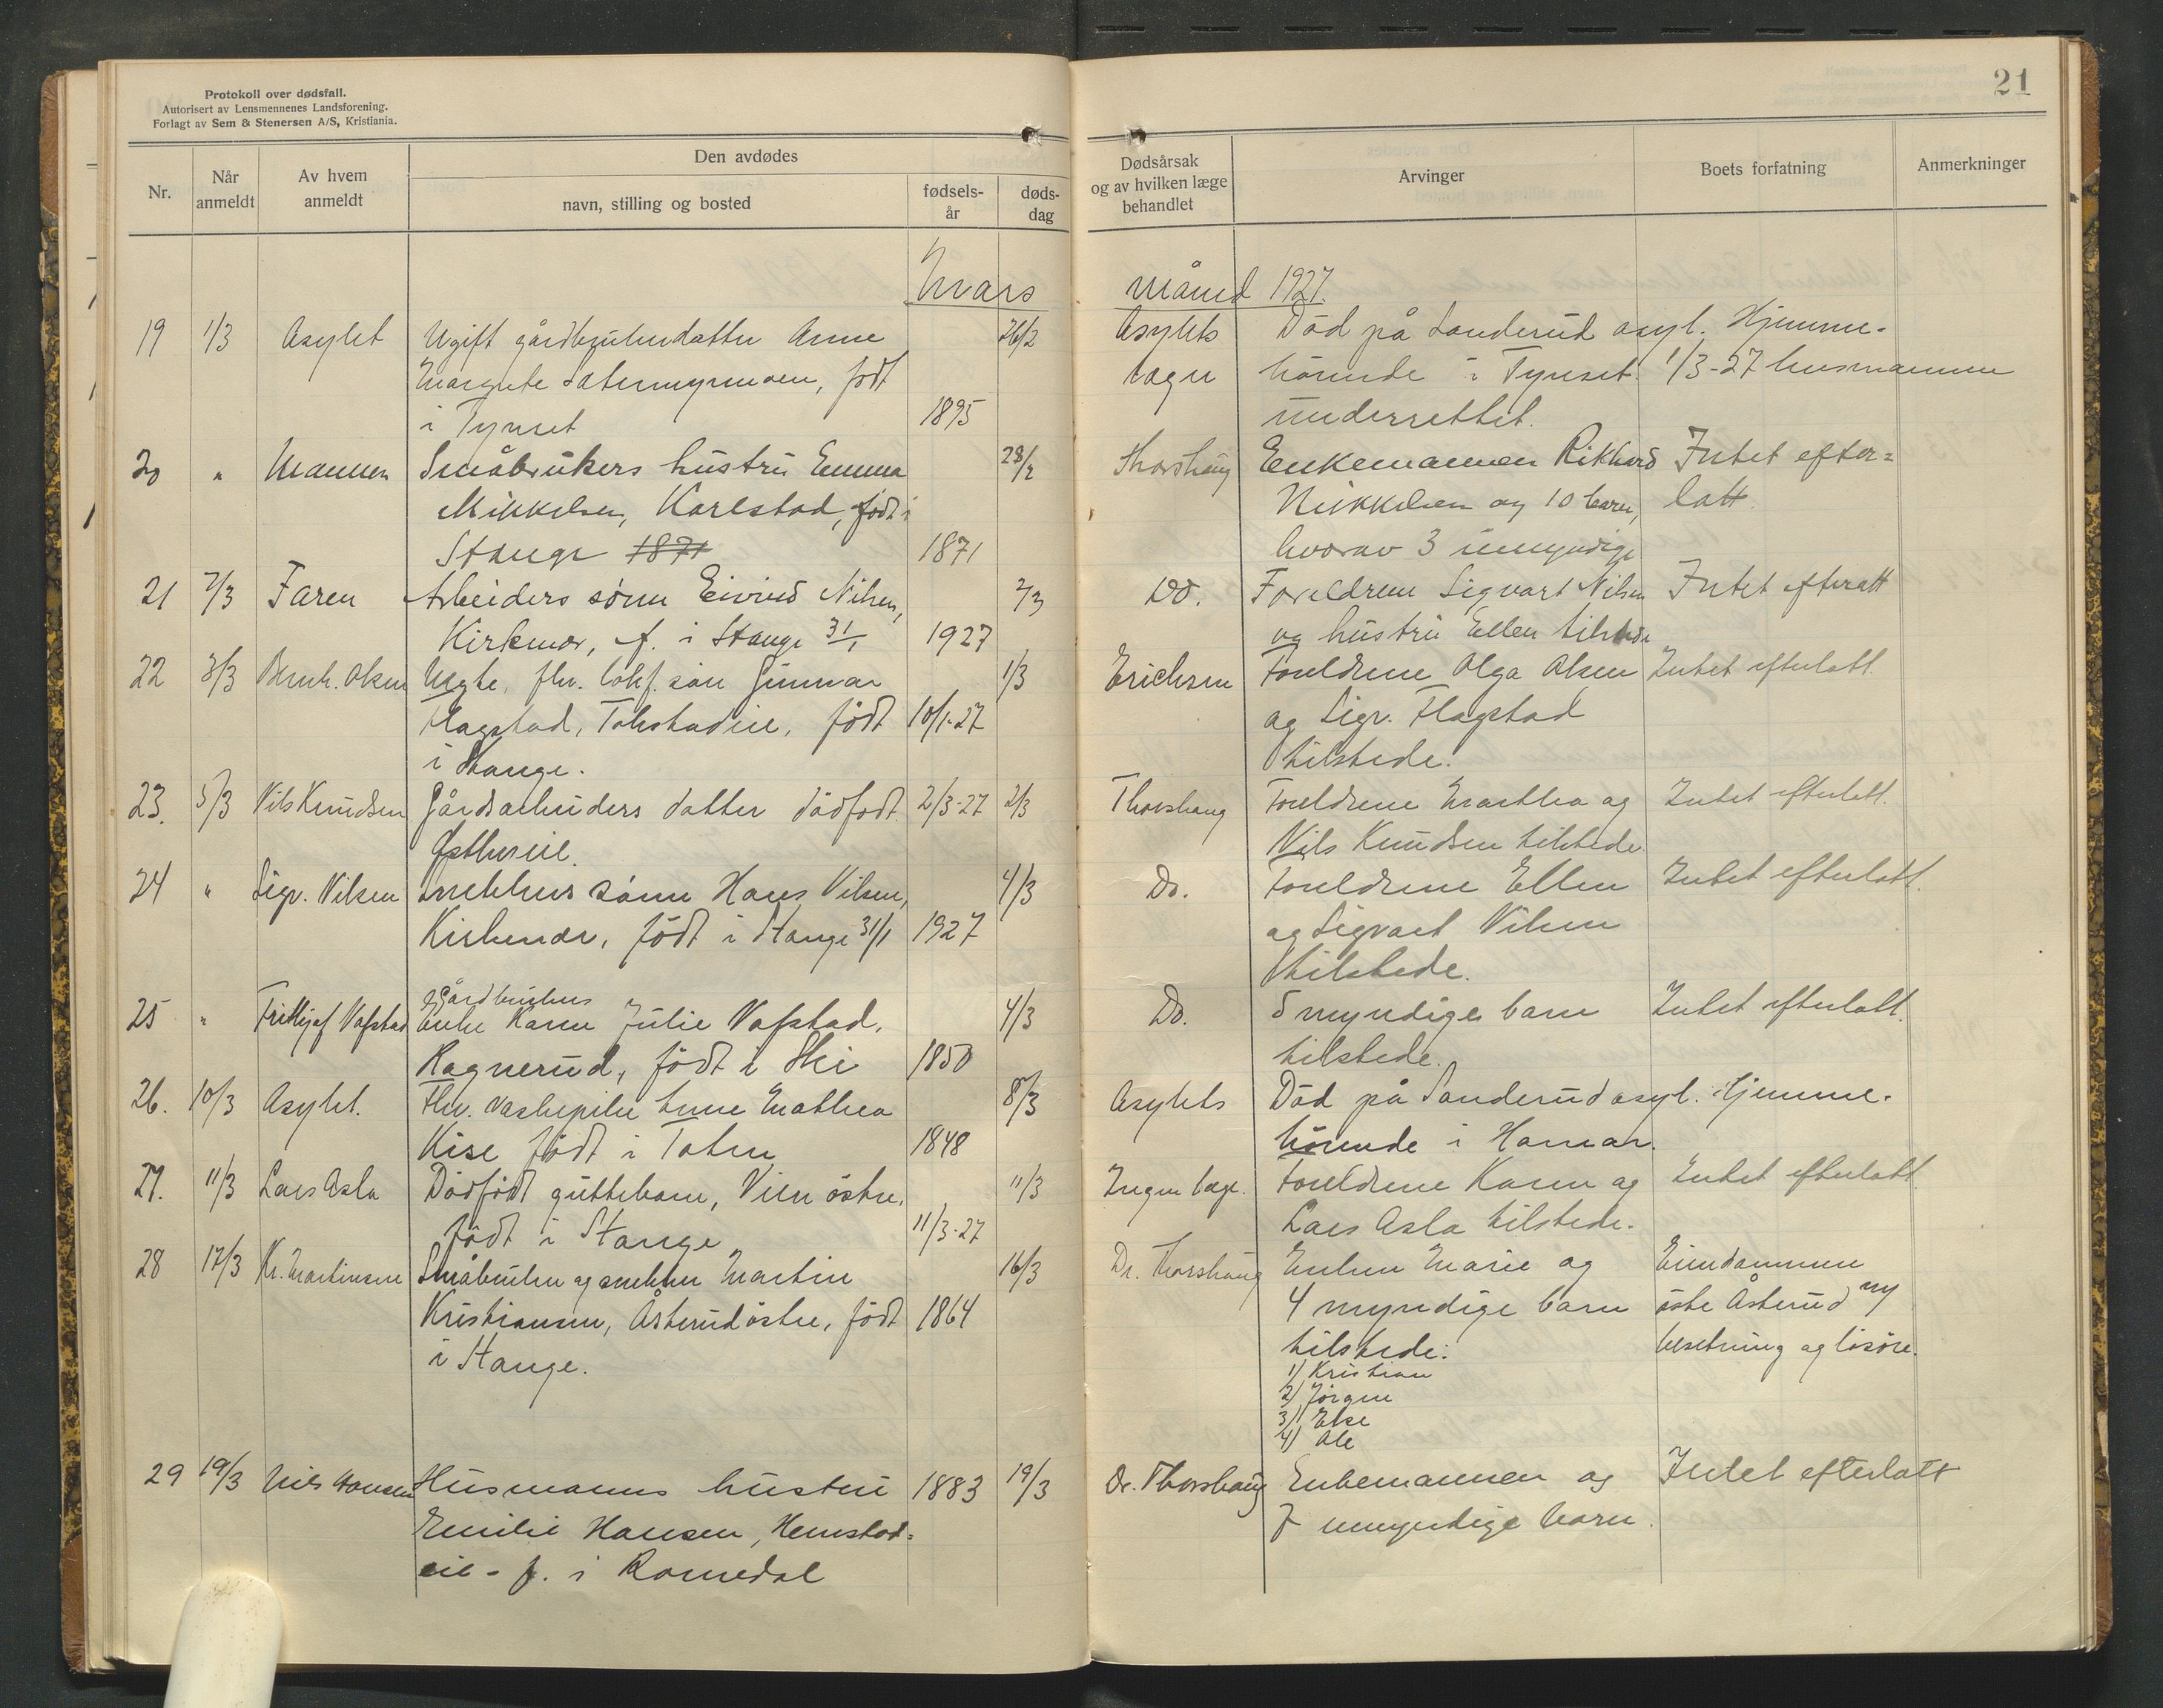 Protokoll over dødsfall.
Autorisert av Lensmennenes Landsforening.
Forlagt av Sem & Stenersen A/S, Kristiania.
21
Nr.
Når anmeldt
Av hvem anmeldt
Den avdødes
navn, stilling og bosted
fødsels-år
døds-dag
Dødsårsak og av hvilken læge behandlet
Arvinger
Boets forfatning
Anmerkninger
Mars måned 1927.
19 1/3 Asylet Ugift gårdbrukerdatter Anne 26/2 Asylets Död på Sanderud asyl. Hjemme-
Margrete Sætermyrmoen, födt læge hörende i Tynset. 1/3-27 husmannen
i Tynset 1895 underrettet.
20 " Mannen Småbrukers hustru Emma 28/2 Thorshaug Enkemannen Rikhard Intet efter=
Mikkelsen, Karlstad, födt i Mikkelsen og 10 barn, latt.
Stange 1871 1871 hvorav 3 umyndige
21 2/3 Faren Arbeiders sönn Eivind Nilsen, 2/3 Do. Foreldrene Sigvart Nilsen Intet efterlatt
Kirkenær, f. i Stange 31/1 1927 og hustru Ellen tilstede
22 3/3 Bernh. Olsen Uegte, fhv. Gunnar 1/3 Erichsen Foreldrene Olga Olsen Intet efterlatt.
Flagstad, födt 10/1-27 og Sigv. Flagstad
i Stange. tilstede.
23. 5/3 Nils Knudsen Gårdsarbeiders datter dödfödt. 2/3-27 2/3 Thorshaug Foreldrene Marthea og Intet efterlatt.
Østbyeie. Nils Knudsen tilstede
24 " Sigv. Nilsen Snekkers sönn Hans Nilsen, 4/3 Do. Foreldrene Ellen Intet efterlatt.
Kirkenær, födt i Stange 31/1 1927 og Sigvart Nilsen
tilstede.
25 " Fridtjof Vafstad Gårdbrukers
Enke Karen Julie Vafstad, 4/3 Do. 5 myndige barn Intet efterlatt.
Ragnerud, födt i Ski 1850 tilstede.
26. 10/3 Asylet. Fhv. vaskepike Anne Mathea 8/3 Asylets Död på Sanderud asyl. Hjemme-
Kise födt i Toten 1848 hörende i Hamar.
27. 11/3 Lars Asla Dödfödt guttebarn, Vien östre, 11/3 Ingen læge. Foreldrene Karen og Intet efterlatt.
födt i Stange 11/3-27 Lars Asla tilstede.
28 17/3 Kr. Martinsen Småbruker og snekker Martin 16/3 Dr. Thorshaug Enken Marie og Eiendommen
Kristiansen, Åsterud östre, födt 1864 4 myndige barn östre Åsterud m/
i Stange. tilstede: besetning og lösöre.
1) Kristian
2) Jörgen
3) Else
4) Ole
29 19/3 Nils Hansen Husmanns hustru 1883 19/3 Dr. Thorshaug Enkemannen og Intet efterlatt
Emilie Hansen, Hemstad= 7 umyndige barn.
eie - f. i Romedal